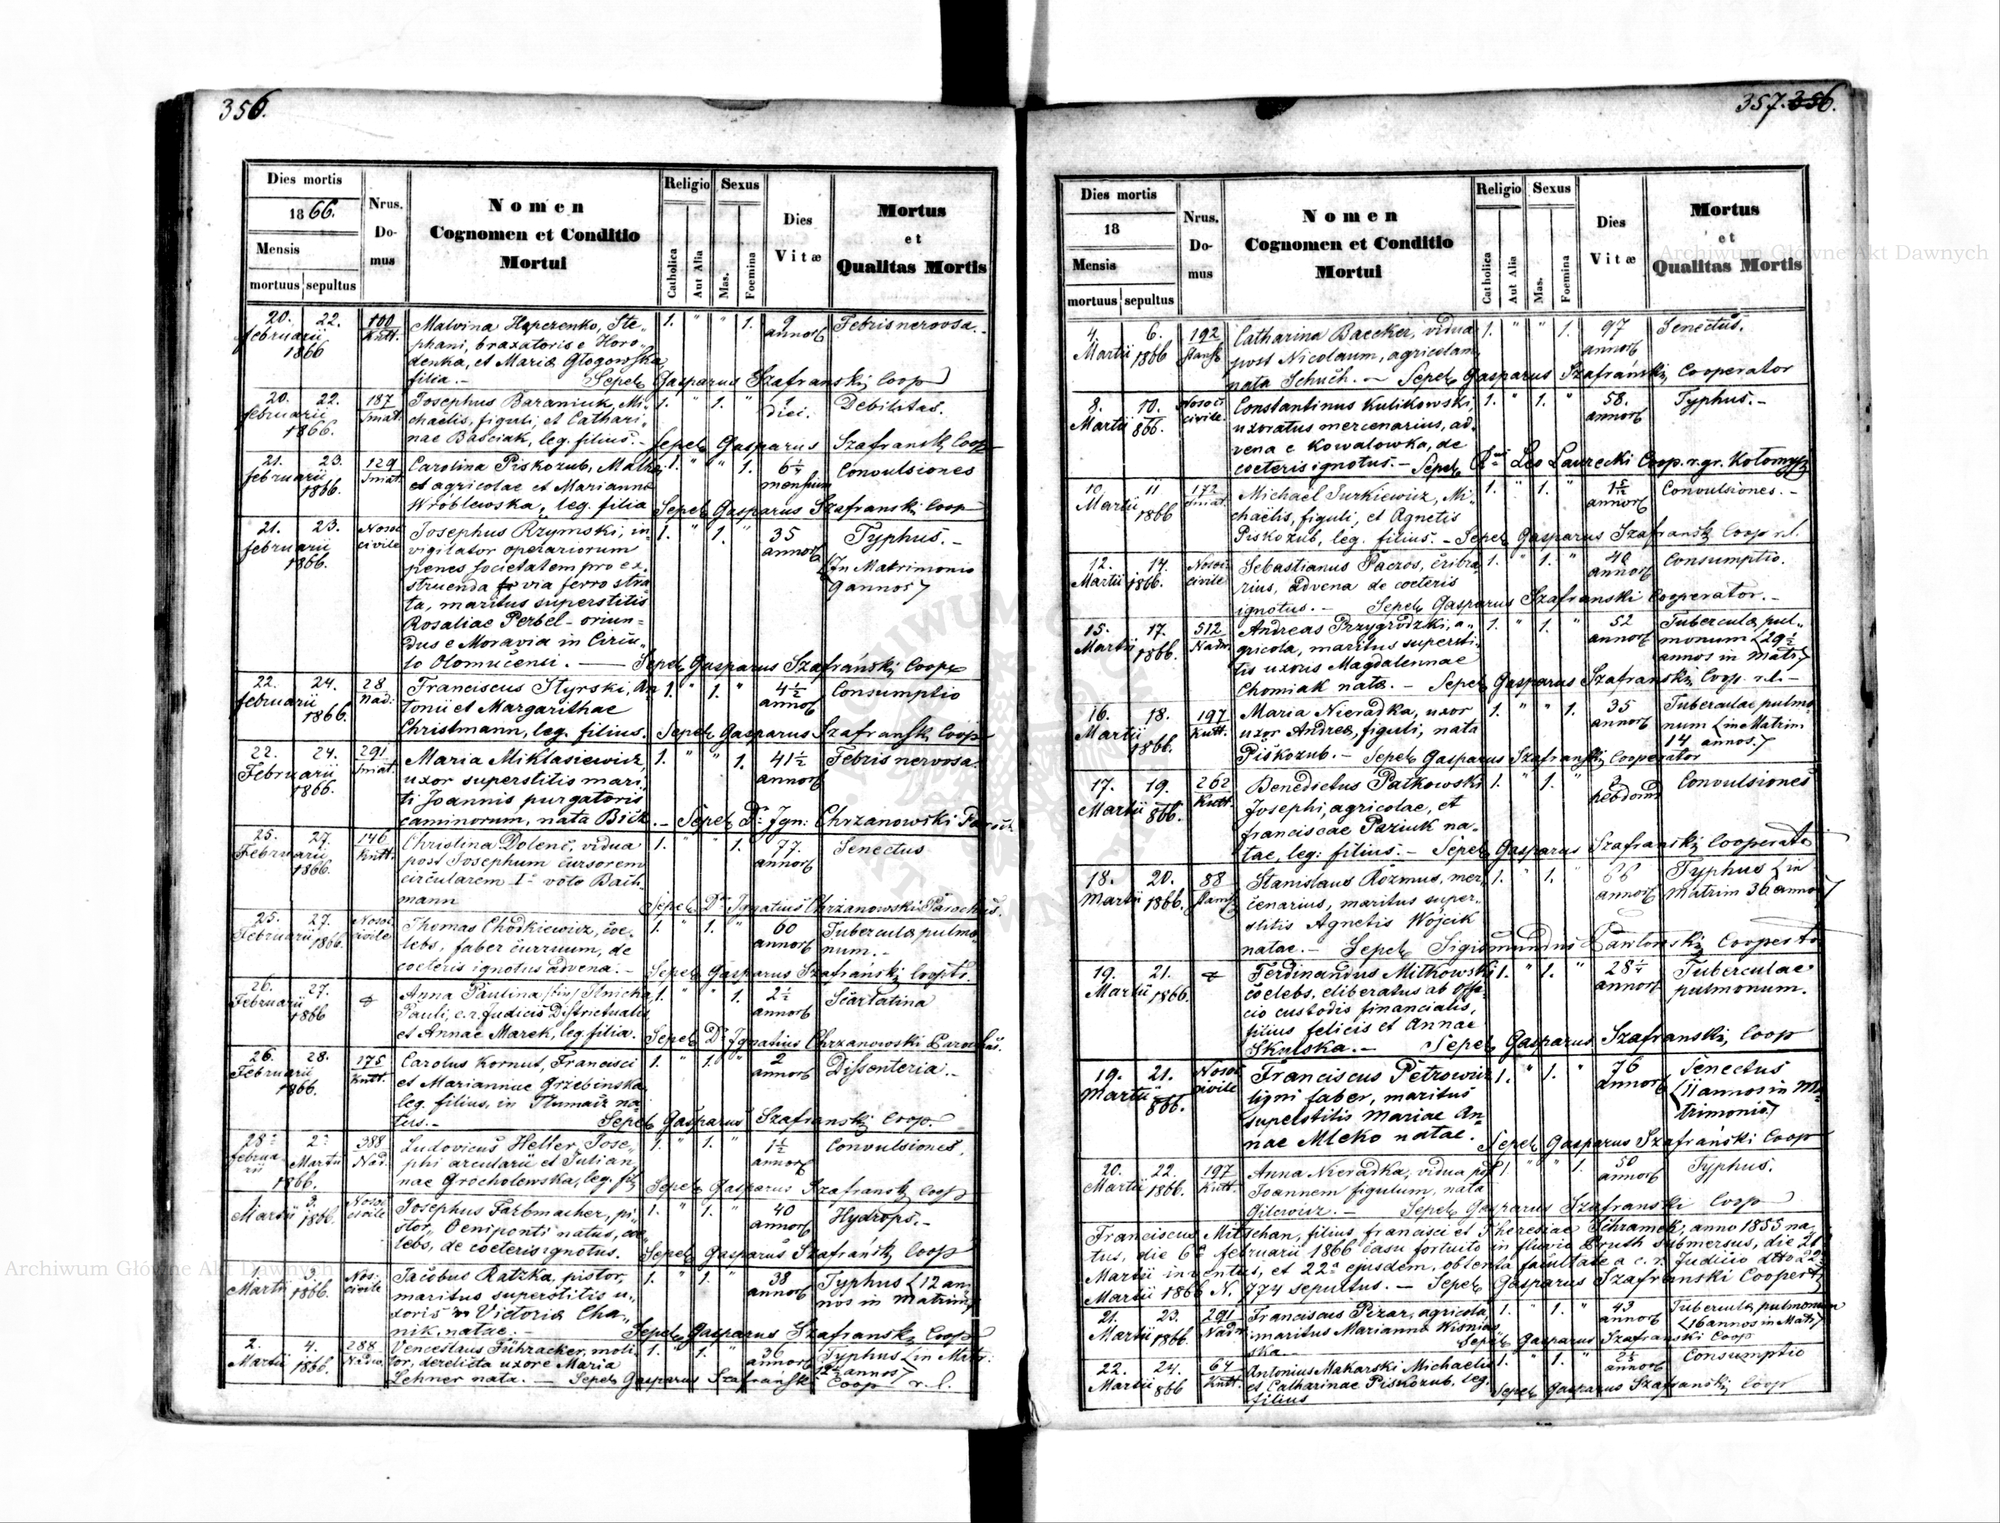 356.
Dies mortis
1866.
Mensis
mortuus sepultus
Nrus.
Do-
mus
Nomen
Cognomen et Conditio
Mortui
Religio
Catholica
Aut Alia
Sexus
Mas.
Foemina
Dies
Vitæ
Mortus
et
Qualitas Mortis
20. 22. 100 Malvina Hoperenko, Ste- 1. " " 1. 9 Febris nervosa.
februarii Kutt. phani, braxatoris e Horo- annor
1866 denka, et Mariæ Głogowska
filia. - Sepel Gasparus Szafranski Coop
20. 22. 187 Josephus Baraniuk, Mi- 1. " 1. " 1 Debilitas.
februarii Sniat. chaëlis, figuli, et Cathari- diei.
1866. nae Baściak, leg. filius. - Sepel Gasparus Szafranski Coop
21. 23. 129 Carolina Piskozub, Mathæ 1. " " 1. 6½ Convulsiones
februarii Sniat. ei agricolae et Marianna mensium
1866. Wróblewska, leg. filia Sepel Gasparus Szafranski Coop
21. 23. Nosoc. Josephus Rzymski, in- 1. " 1. " 35 Typhus. -
februarii civile vigilator operariorum annor
1866. penes societatem pro ex- [In Matrimonio
struenda via ferro stra- 9 annos]
ta, maritus superstitis
Rosaliae Perbel - oriun-
dus e Moravia in Circu-
lo Olomućensi. - Sepel Gasparus Szafrański Coop
22. 24. 28 Franciscus Styrski, An 1. " 1. " 4½ Consumptio
februarii Nad. tonii et Margarithae annor
1866. Christmann, leg. filius. Sepel Gasparus Szafranski Coop
22. 24. 291 Maria Miklasiewicz 1. " " 1. 41½ Febris nervosa
Februarii Sniat. uxor superstitis mari- annor
1866. ti Joannis purgatoris
caminorum, nata Bick. - Sepel Dr. Ign: Chrzanowski Paroch
25. 27. 146 Christina Dolenc, vidua 1. " 1. 77. Senectus
Februarii Kutt. post Josephum cursorem annor
1866. circularem Iº voto Bach
mann Sepel Dr Ignatius Chrzanowski Parochus.
25. 27. Nosoc. Thomas Chodkiewicz, coe- 1. " 1. " 60 Tubercula pulmo-
Februarii 1866. civile lebs, faber curruum, de annor num. -
coeteris ignotus advena. - Sepel Gasparus Szafranski Coop
26. 27. Anna Paulina Ilnicka, 1. " " 1. 2½ Scarlatina
Februarii 1866 Pauli, c. r. Judicis Districtualis annor
et Annae Marek, leg. filia. Sepel Dr Ignatius Chrzanowski Parochus.
26. 28. 175 Carolus Kornut, Francisci 1. " 1. " 2 Dissenteria. -
Februarii Kutt. et Mariannae Grzebinska annor
1866. leg. filius, in Tłumacz na-
tus. - Sepel Gasparus Szafranski Coop.
28 2 388 Ludovicus Heller, Jose- 1. " 1. " 1½ Convulsiones,
februa- Martii Nad. phi arcularii et Julian- annor
rii 1866. nae Grocholewska, leg. fil. Sepel Gasparus Szafranski Coop
1. 3. Nosoc. Josephus Farbmacher, pi- 1. " 1. " 40 Hydrops. -
Martii 1866. civile stor, Oeniponti natus, coe- annor
lebs, de coeteris ignotus. Sepel Gasparus Szafrański Coop
1. 3. Nos. Jacobus Ratzka, pistor, 1. " 1. " 38 Typhus [12 an-
Martii 1866. civile maritus superstitis u- annor nos in Matrim]
xoris Victoria Cha-
nik, natae. - Sepel Gasparus Szafranski Coop
2. 4. 288 Venceslaus Führacker, moli- 1. " 1. " 36 Typhus [in Matr:
Martii 1866. tor, derelicta uxore Maria annor 12 annos]
Lehner nata. - Sepel Gasparus Szafranski Coop r. l.
357. 356.
Dies mortis
18
Mensis
mortuus sepultus
Nrus.
Do-
mus
Nomen
Cognomen et Conditio
Mortui
Religio
Catholica
Aut Alia
Sexus
Mas.
Foemina
Dies
Vitæ
Mortus
et
Qualitas Mortis
4. 6. 192 Catharina Baecker, vidua 1. " " 1. 97 Senectus.
Martii 1866 post Nicolaum, agricolam annor
nata Schuch. - Sepel Gasparus Szafrański, Cooperator
8. 10. Nosoc. Constantinus Kulikowski, 1. " 1. " 58. Typhus. -
Martii 1866. civile. uxoratus mercenarius, ad- annor
vena e Kowalowka, de
coeteris ignotus. - Sepel Leo Laurecki Coop. r. gr. Kołomyj
10 11 172 Michaël Jurkiewicz, Mi- 1. " 1. " Convulsiones. -
Martii 1866 Sniat. chaëlis, figuli, et Agnetis annor
Piskozub, leg. filius. - Sepel Gasparus Szafranski Coop r. l.
12. 14. Nosoc. Sebastianus Paczos, cribra- 1. " 1. " 40 Consumptio.
Martii 1866. civile rius, advena de coeteris annor
ignotus. - Sepel Gasparus Szafranski Cooperator. -
15. 17. 512 Andreas Przygrodzki, a- 1. " 1. " 52 Tubercula pul-
Martii 1866. Nadw. gricola, maritus supersti- annor monum [29½
tis uxoris Magdalennae annos in Matr.]
Chomiak nata. - Sepel Gasparus Szafranski Coop. r. l. -
16. 18. 197 Maria Nieradka, uxor 1. " " 1. 35 Tuberculae pulmo-
Martii Kutt. uxor Andreæ, figuli, nata annor num [in Matrim.
1866. Piskozub. - Sepel Gasparus Szafranski Cooperator 14 annos.]
17. 19. 262 Benedictus Patkowski 1. " 1. " 2 Convulsiones
Martii 1866. Kutt. Josephi, agricolae, et hebdom
franciscae Paziuk na-
tae, leg: filius. - Sepel Gasparus Szafranski Cooperator
18. 20. 88 Stanislaus Rozmus, mer- 1. " 1. " 66 Typhus [in
Martii 1866. cenarius, maritus super- annor Matrim 36 annos]
stitis Agnetis Wojcik
natae. - Sepel Sigismundus Pawłowski Cooperator
19. 21. Ferdinandus Mitkowski 1. " 1. " 28½ Tuberculae
Martii 1866. coelebs, eliberatus ab offi- annor pulmonum.
cio custodis financialis,
filius felicis et Annae
Skulska. - Sepel Gasparus Szafranski, Coop
19. 21. Nosoc. Franciscus Petrowicz 1. " 1. " 76 Senectus
Martii 1866. civile ligni faber, maritus annor [11 annos in Ma-
superstitis Mariae An- trimonio.]
nae Mleko natae. Sepel Gasparus Szafrański Coop
20. 22. 197 Anna Nieradka, vidua post 1. " " 1. 50 Typhus.
Martii 1866. Kutt. Joannem figulum, nata annor
Gilewicz. - Sepel Gasparus Szafranski Coop
Franciscus Mitschan, filius, francisci et Theresiae Schramek, anno 1855 na-
tus, die 6a februarii 1866 casu fortuito in fluvio Pruth submersus, die 21
Martii inventus, et 22a ejusdem, obtenta facultate a c. r. Judicio dtto 22
Martii 1866 N. 774 sepultus. - Sepel Gasparus Szafranski Cooper
21. 23. 291 Franciscus Pizar, agricola, 1. " 1. " 43 Tubercula pulmonum
Martii 1866. Nadw. maritus Marianna Wisnios annor [16 annos in Matr.]
ska - Sepel Gasparus Szafranski Coop
22. 24. 64 Antonius Makarski Michaelis 1. " 1. " 2½ Consumptio
Martii 1866 Kutt. et Catharinae Piskozub, leg. annor
filius Sepel Gasparus Szafranski Coop
Archiwum Główne Akt Dawnych
Archiwum Główne Akt Dawnych